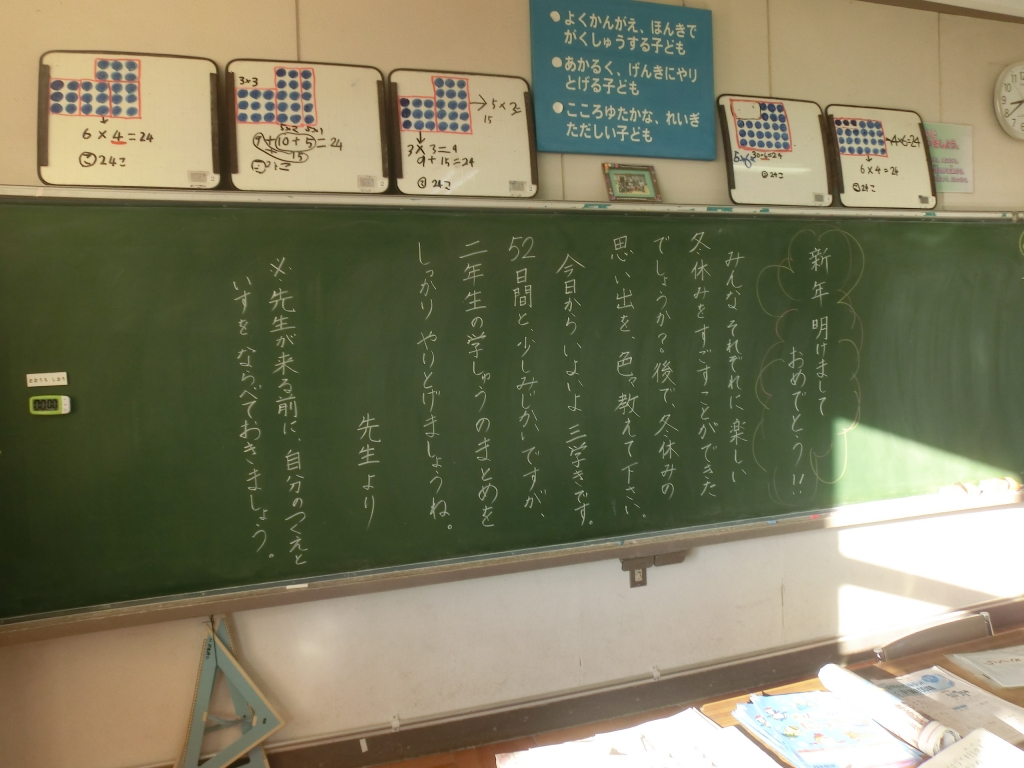 ●よくかんがえ、ほんきで
がくしゅうする子ども
●あかるく、げんきにやり
とげる子ども
●こころゆたかな、れいぎ
ただしい子ども
6×4=24
24こ
3×3
9+(10+5)=24
15
3×3=9
9+15=24
24こ
15
30-6=24
24こ
4×6=24
6×4=24
24こ
新年 明けまして
おめでとう!!
みんな それぞれに 楽しい
冬休みをすごすことができた
でしょうか?後で、冬休みの
思い出を、色々教えて下さい。
今日から、いよいよ 三学きです。
52日間と、少しみじかいですが、
二年生の学しゅうのまとめを
しっかり やりとげましょうね。
先生より
※先生が来る前に、自分のつくえと
いすをならべておきましょう。